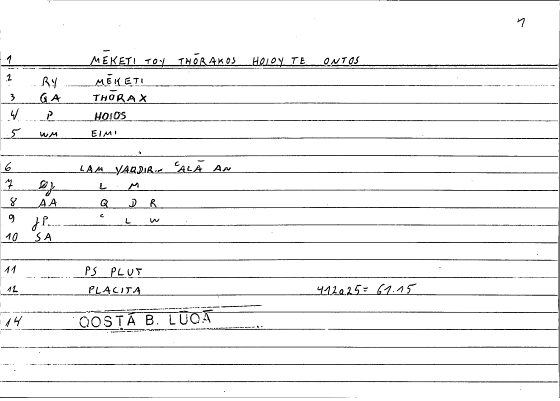 7
1 MĒKETI TOY THŌRAKOS HOIOY TE ONTOS
2 RY MĒKETI
3 GA THŌRAX
4 P HOIOS
5 WM EIMI
6 LAM YAQDIR ʿALĀ AN
7 L M
8 AA Q D R
9 JP ʿ L W
10 SA
11 PS PLUT
12 PLACITA 412a25= 61.15
14 QOSṬĀ B. LŪQĀ